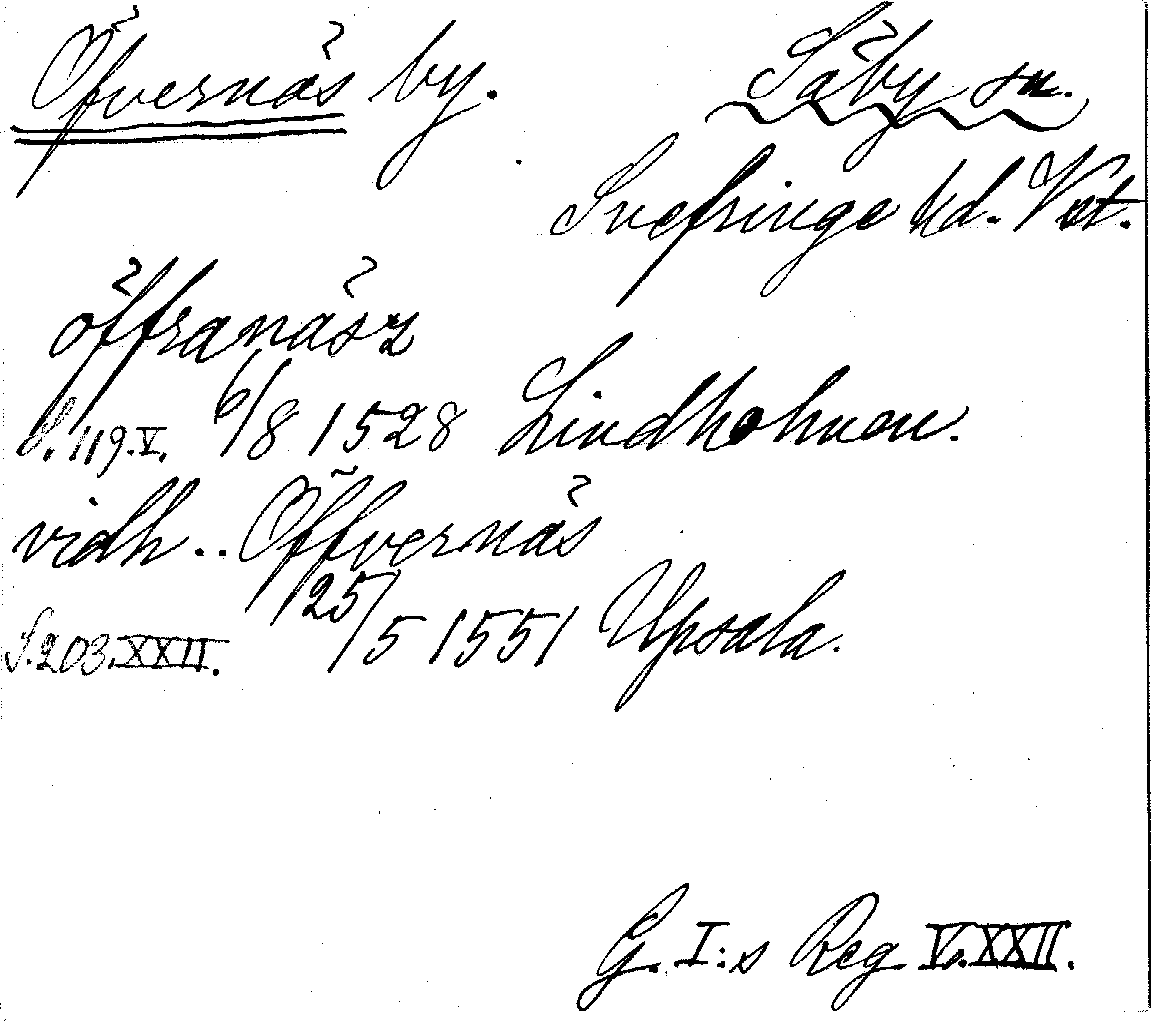 Öfvernäs by.
Säby sn.
Svefringe hd. Vst.
öffranäsz
S. 119. V. 6/8 1528 Lindholmen.
vidh .. Öffvernäs
S. 203. XXII. 25/5 1551 Upsala.
G. I:s Reg. V. XXII.